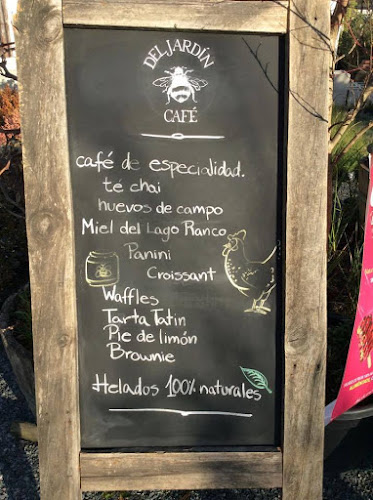 DEL JARDÍN
CAFÉ
café de especialidad.
té chai
huevos de campo
Miel del Lago Ranco
Panini
Croissant
Waffles
Tarta Tatin
Pie de limón
Brownie
Helados 100% naturales